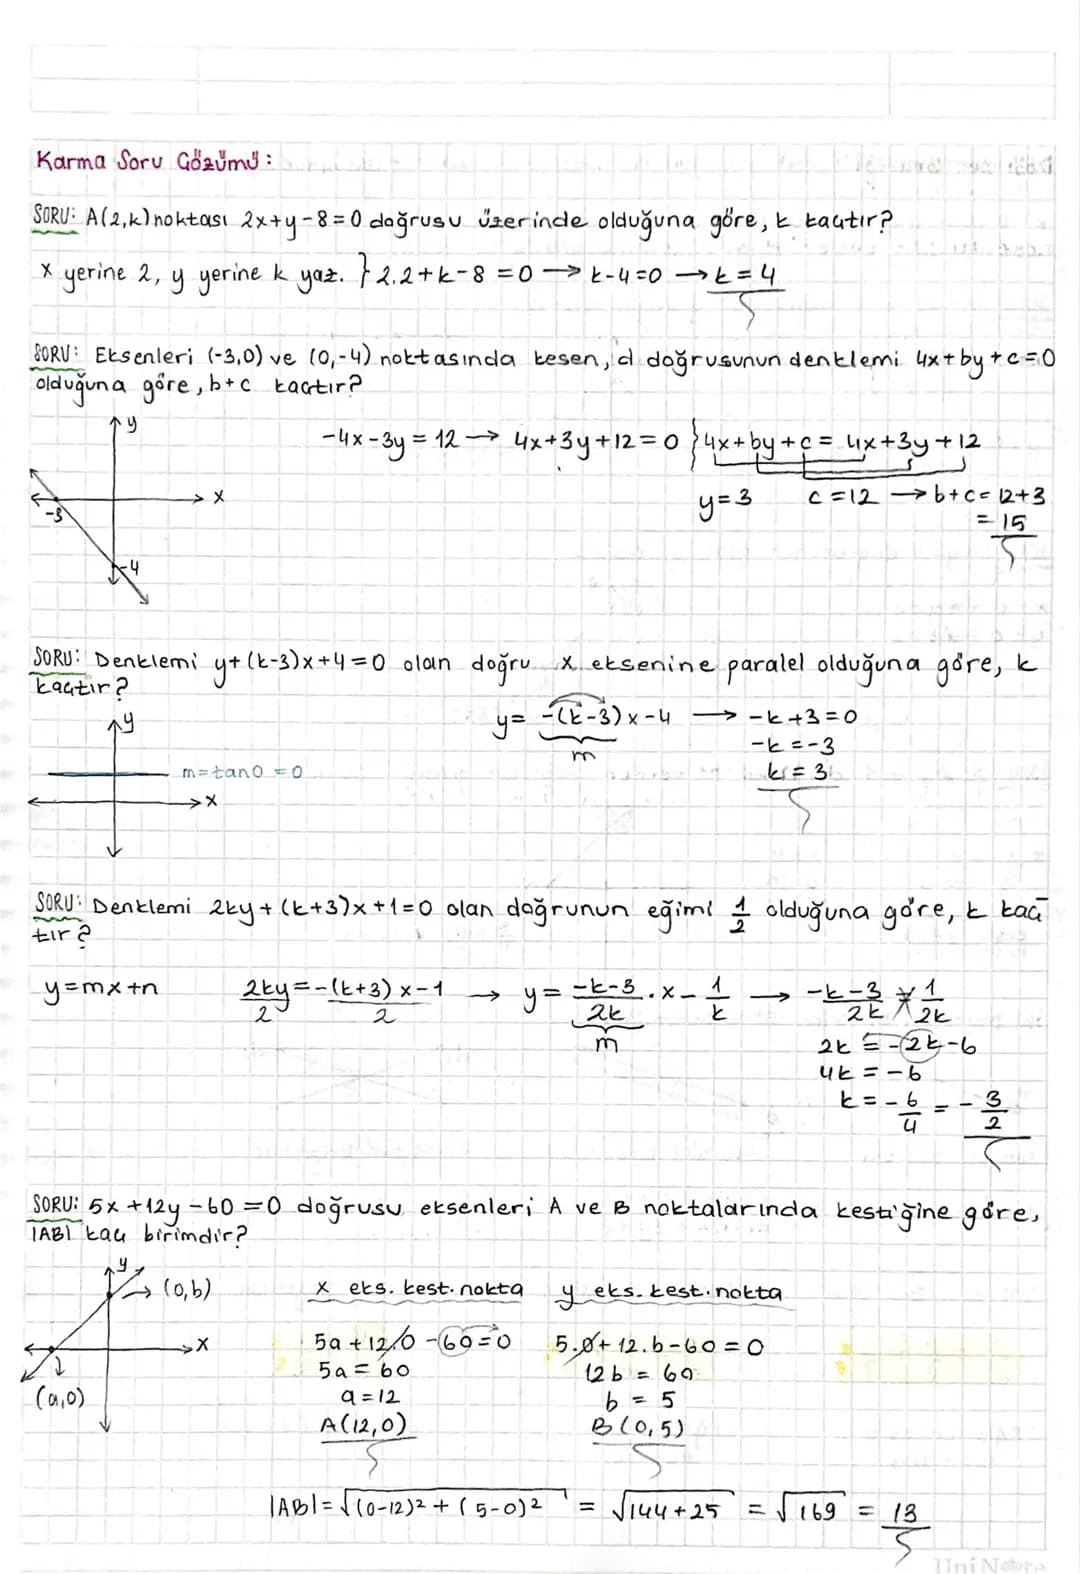 Karma Soru Çözümü:
SORU: A(2,k) noktası 2x+y-8=0 doğrusu üzerinde olduğuna göre, k kaçtır?
x yerine 2, y yerine k yaz. } 2.2+k-8=0 → k-4=0 → k=4
SORU: Eksenleri (-3,0) ve (0,-4) noktasında kesen, d doğrusunun denklemi 4x+by+c=0
olduğuna göre, b+c kaçtır?
y
-4x-3y=12 → 4x+3y+12=0 } 4x+by+c = 4x+3y+12
x
-3
y=3 c=12 → b+c=12+3
=15
-4
SORU: Denklemi y+(k-3)x+4=0 olan doğru x eksenine paralel olduğuna göre, k
kaçtır?
y
y= -(k-3)x-4 → -k+3=0
m
-k=-3
m=tan0=0
k=3
x
SORU: Denklemi 2ky+(k+3)x+1=0 olan doğrunun eğimi 1/2 olduğuna göre, k kaç
tır?
y=mx+n 2ky/2=-(k+3)x-1/2 → y= -k-3/2k .x- 1/k → -k-3/2k 1/2k
m
2k=-2k-6
4k=-6
k=-6/4=-3/2
SORU: 5x+12y-60=0 doğrusu eksenleri A ve B noktalarında kestiğine göre,
|AB| kaç birimdir?
y
(0,b) x eks. kest. nokta y eks. kest. nokta
x
5a+12.0-60=0 5.0+12.b-60=0
5a=60 12b=60
(a,0)
a=12 b=5
A(12,0) B(0,5)
|AB|=√(0-12)2+(5-0)2 = √144+25 = √169 = 13
UniNote